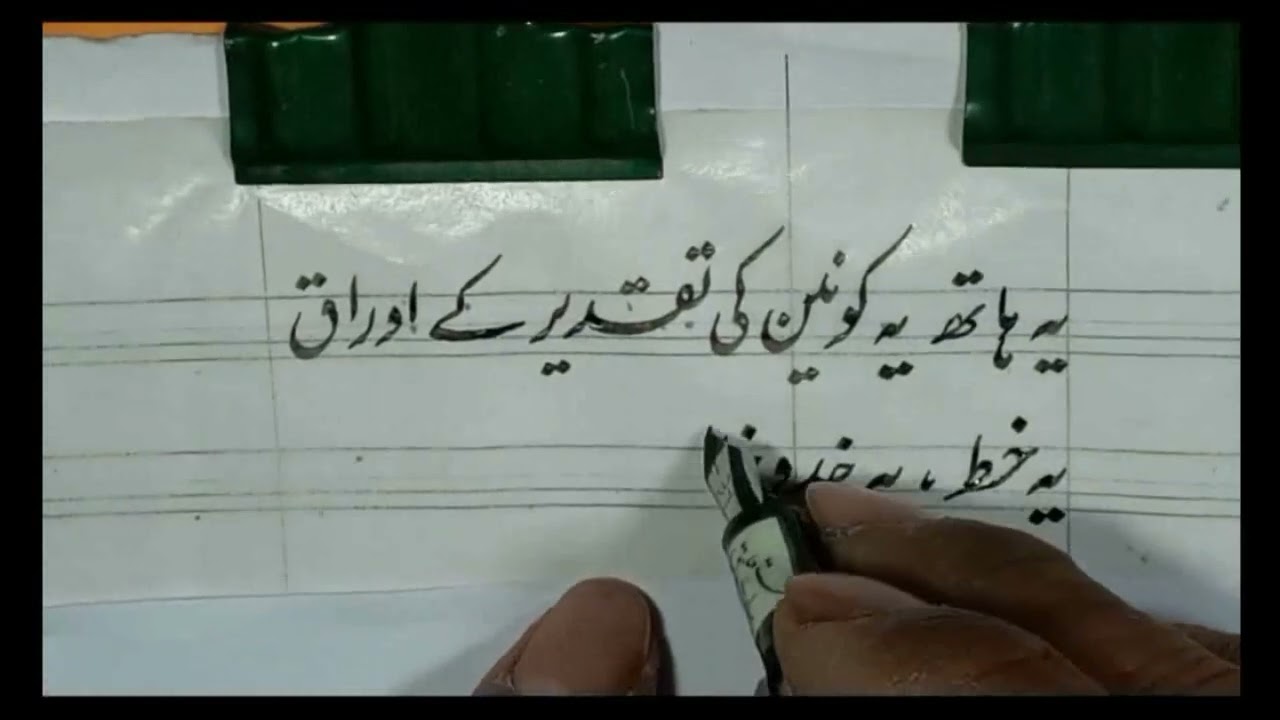 یہ ہاتھ یہ کونین کی تقدیر کے اوراق
یہ خط ، یہ خد و